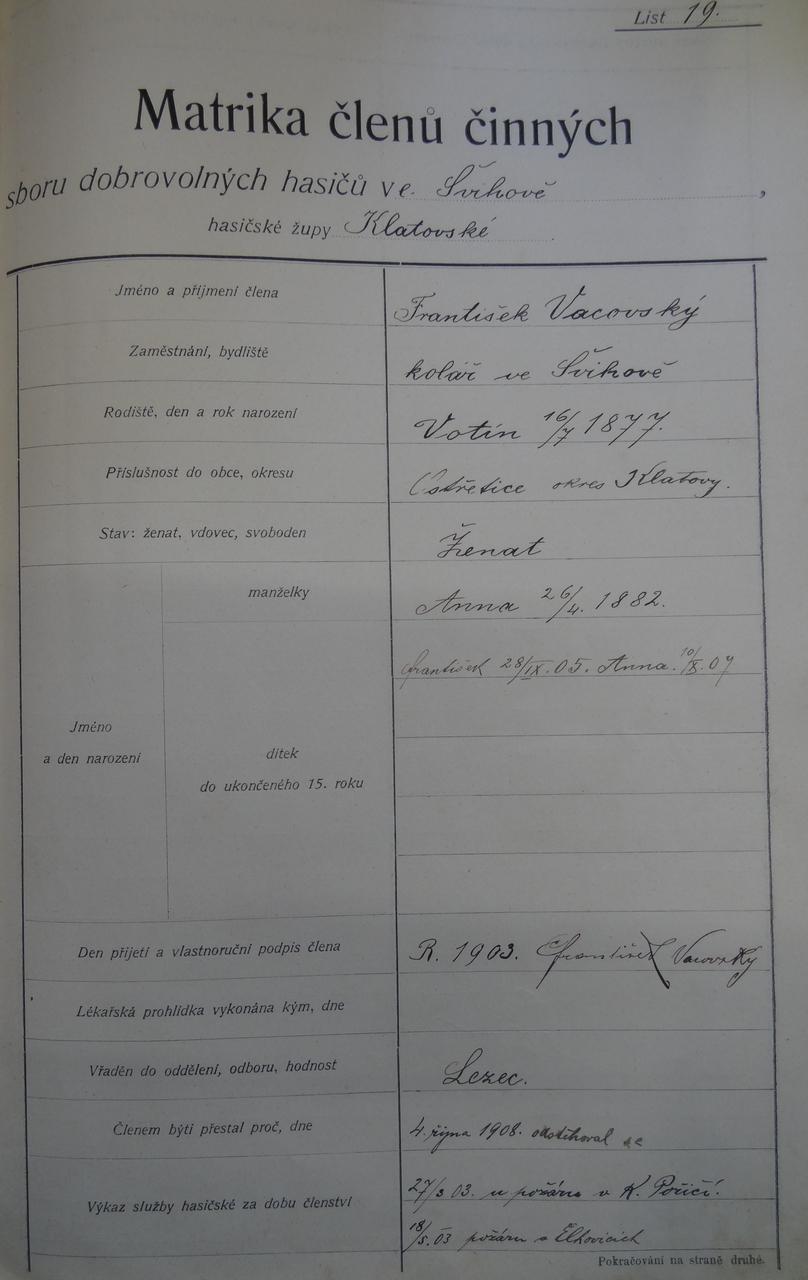 List 19.
Matrika členů činných
sboru dobrovolných hasičů ve Švihově,
hasičské župy Klatovské
Jméno a příjmení člena František Vacovský
Zaměstnání, bydliště kolář ve Švihově
Rodiště, den a rok narození Votín 16/7 1877.
Příslušnost do obce, okresu Ostřetice okres Klatovy.
Stav: ženat, vdovec, svoboden Ženat
manželky Anna 26/4. 1882.
František 28/IX. 05. Anna. 10/X. 07
Jméno
a den narození
dítek
do ukončeného 15. roku
Den přijetí a vlastnoruční podpis člena R. 1903. František Vacovský
Lékařská prohlídka vykonána kým, dne
Vřaděn do oddělení, odboru, hodnost Lezec.
Členem býti přestal proč, dne 4. října 1908. odstěhoval se
Výkaz služby hasičské za dobu členství 27/3 03. u požáru v K. Poříčí.
18/5. 03 požáru v
Pokračování na straně druhé.